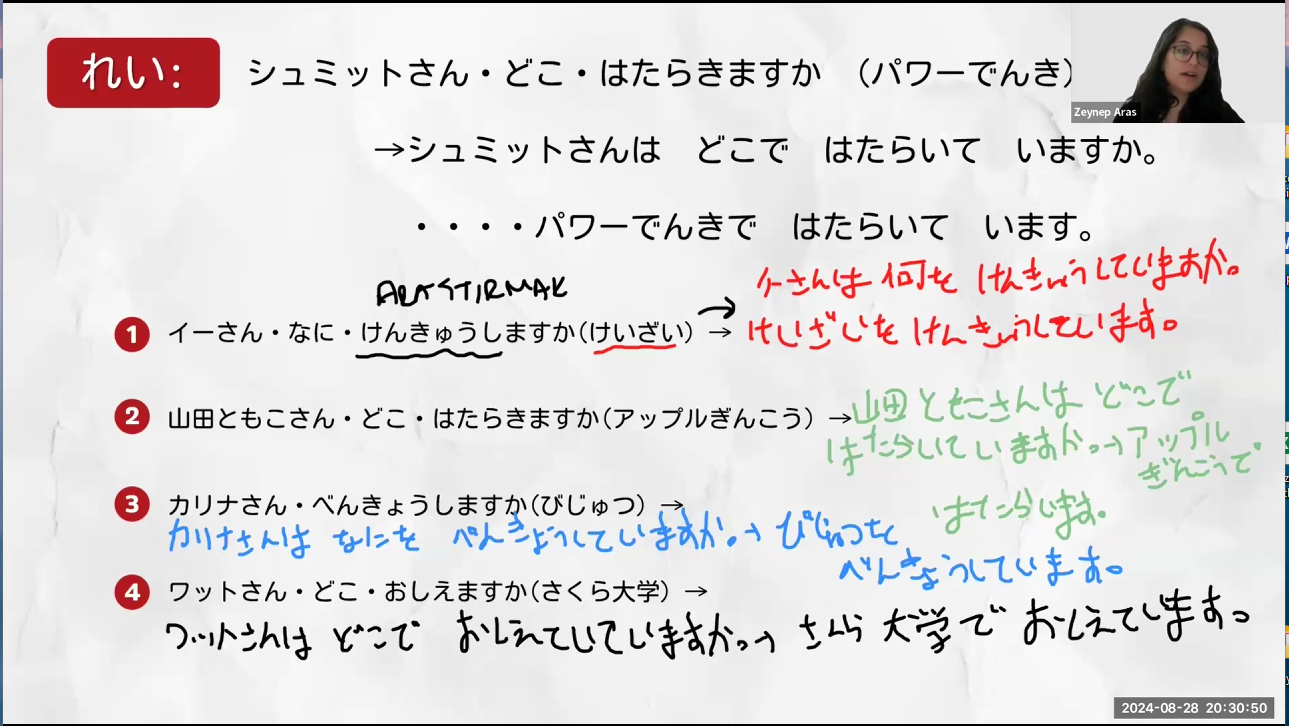 れい:
シュミットさん・どこ・はたらきますか （パワーでんき）
Zeynep Aras
→シュミットさんは どこで はたらいて いますか。
・・・・パワーでんきで はたらいて います。
ARAŞTIRMAK
1 イーさん・なに・けんきゅうしますか(けいざい) →
イーさんは 何を けんきゅうしていますか。
けいざいを けんきゅうしています。
2 山田ともこさん・どこ・はたらきますか(アップルぎんこう) →
山田ともこさんは どこで
はたらいていますか。→アップル
ぎんこうで
はたらいます。
3 カリナさん・べんきょうしますか(びじゅつ) →
カリナさんは なにを べんきょうしていますか。→ びじゅつを
べんきょうしています。
4 ワットさん・どこ・おしえますか(さくら大学) →
ワットさんは どこで おしえていていますか。→ さくら 大学で おしえています。
2024-08-28 20:30:50